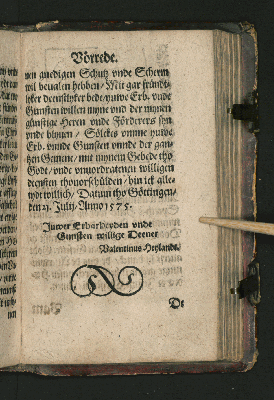 Vörrede.
nen gnedigen Schutz vnde Scherm
wil beualen hebben / Mit gar fründt-
lyker deenstlyker bede / yuwe Erb. vnde
Gunsten willen myne vnd der mynen
günstige Heren vnde Förderers syn
vnde blyuen / Sölckes vmme yuwe
Erb. vnnde Gunsten vnnde der gan-
tzen Gemene / mit mynem Gebede tho
Gode / vnde vnuordratenen willigen
deensten thouorschülden / bin ick alle-
tydt willich / Datum tho Göttingen /
den 23. July / Anno 1575.
Juwer Erbarheyden vnde
Gunsten willige Deener
Valentinus Heylandt.
De